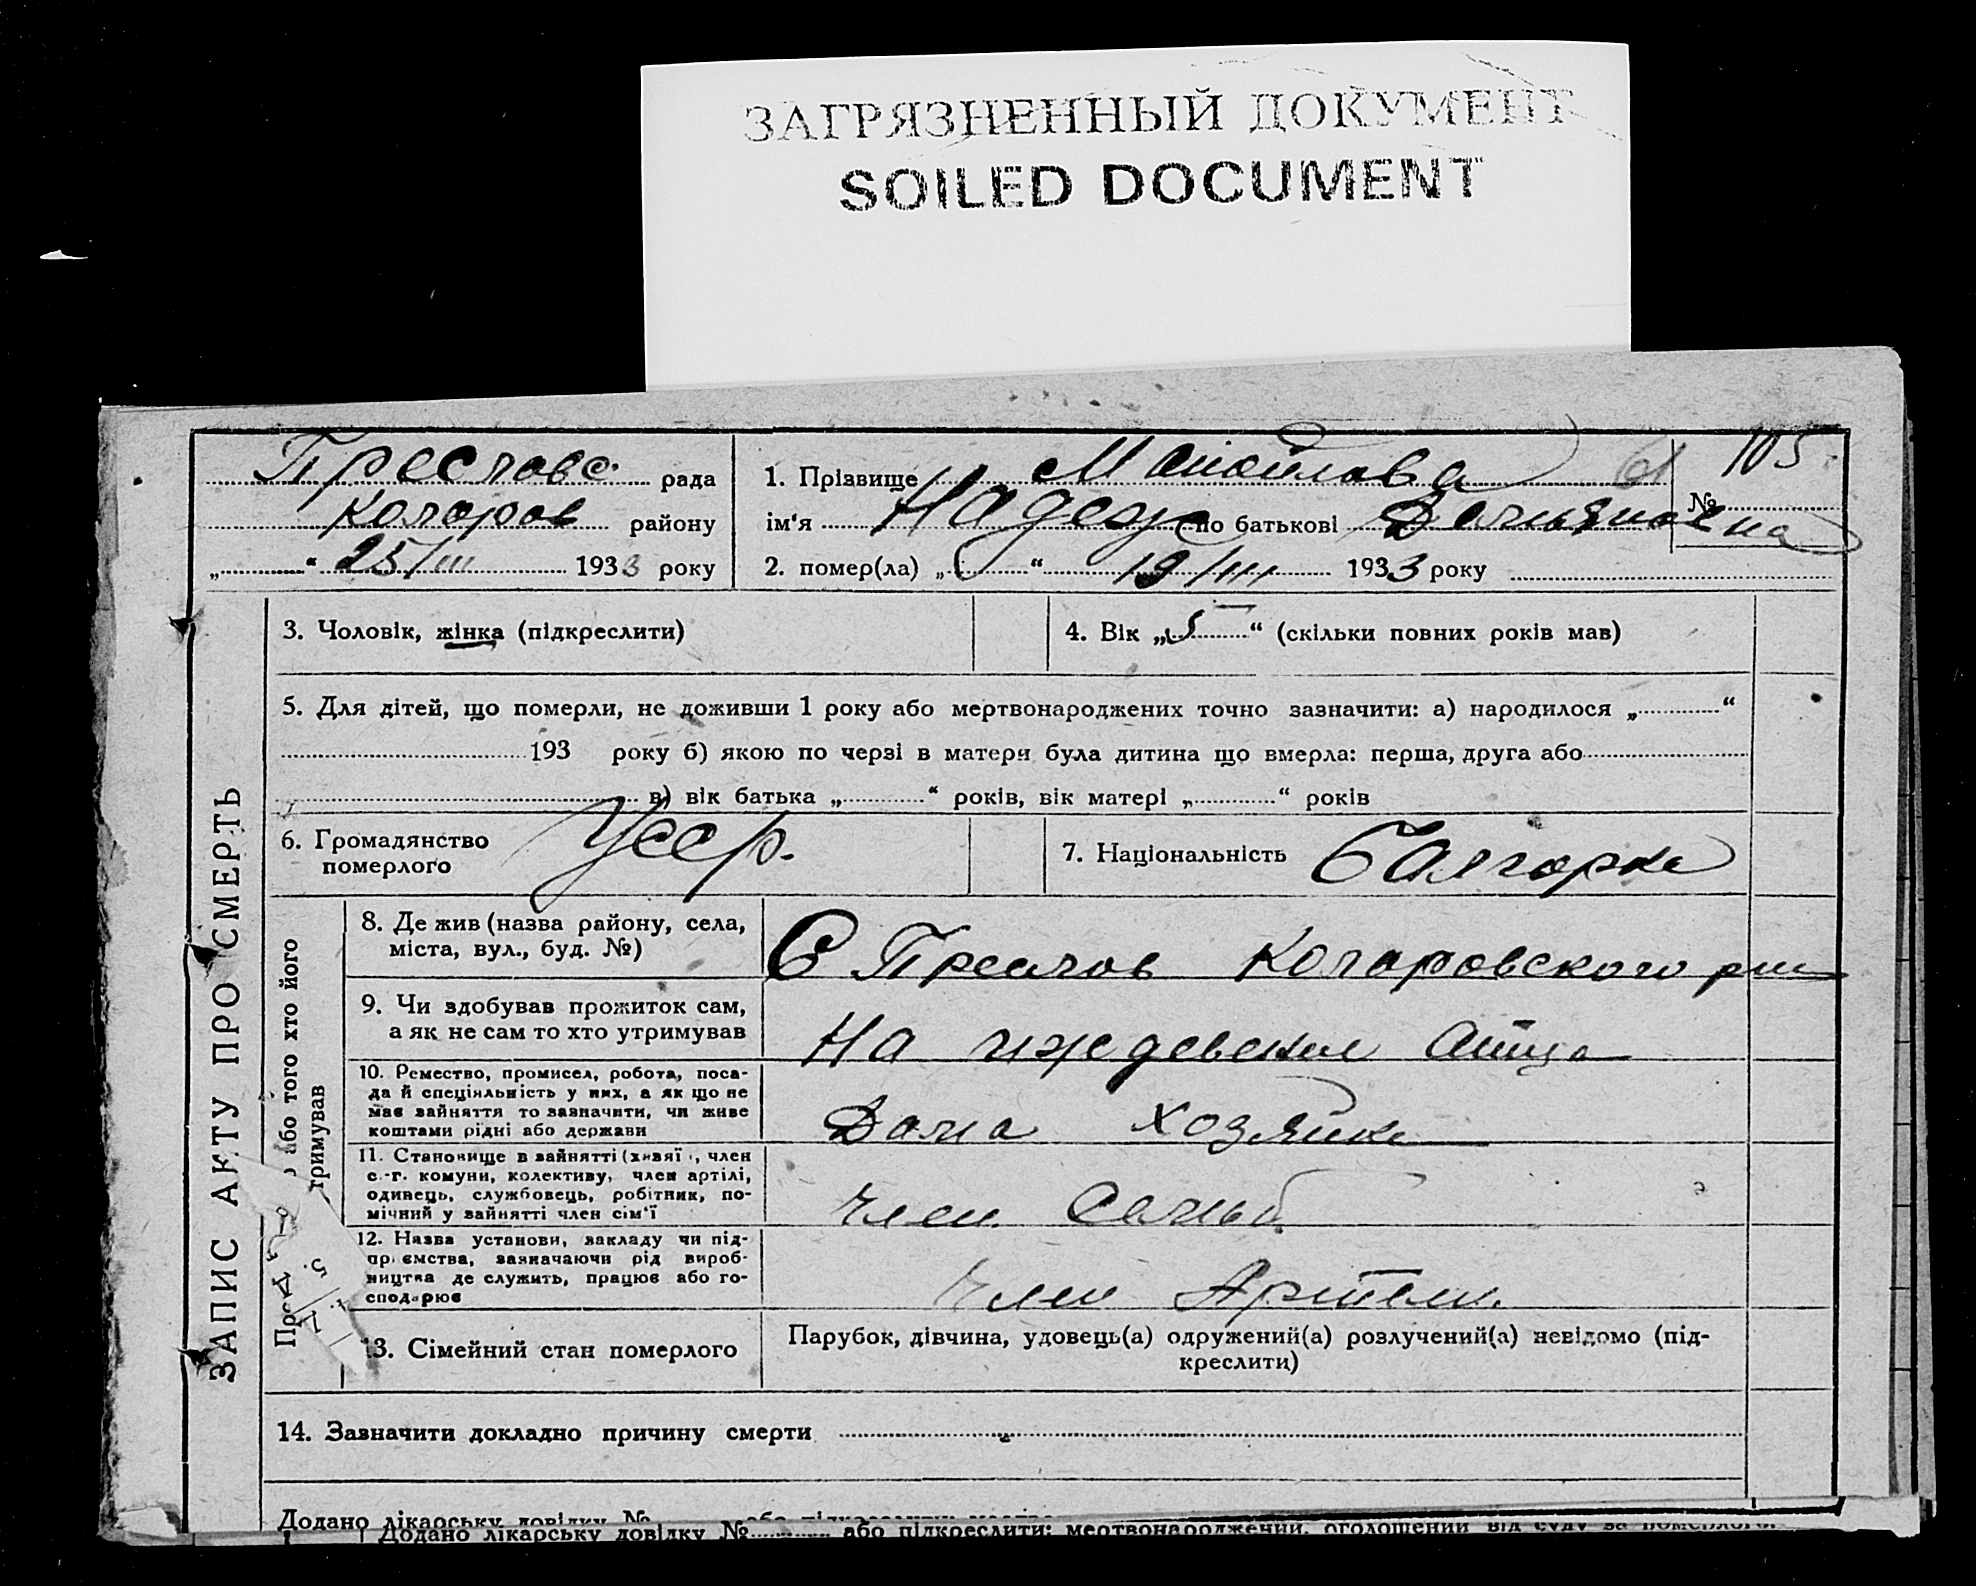 ЗАГРЯЗНЕННЫЙ ДОКУМЕНТ
SOILED DOCUMENT
105
Преславс. рада
Коларов району
„ “ 25/III 1933 року
1. Прізвище Манойлова
№
ім‘я Надеж по батькові Демьяновна
2. помер(ла) „ “ 19/III 1933 року
ЗАПИС АКТУ ПРО СМЕРТЬ
3. Чоловік, жінка (підкреслити)
4. Вік „5“ (скільки повних років мав)
5. Для дітей, що померли, не доживши 1 року або мертвонароджених точно зазначити: а) народилося „ “
193 року б) якою по черзі в матери була дитина що вмерла: перша, друга або
в) вік батька „ “ років, вік матері „ “ років
6. Громадянство
померлого
Усср.
7. Національність Балгарка
або того хто його
тримував
8. Де жив (назва району, села,
міста, вул., буд. №)
С Преслав Коларовского
9. Чи здобував прожиток сам,
а як не сам то хто утримував
На иждевении Отца
10. Ремество, промисел, робота, поса-
да й спеціяльність у них, а як що не
має зайняття то зазначити, чи живе
коштами рідні або держави
Дома хозяйка
11. Становище в зайнятті (хазяї , член
с.-г. комуни, колективу, член артілі,
одинець, службовець, робітник, по-
мічний у зайнятті член сім‘ї
Член Семьи
12. Назва установи, закладу чи під-
приємства, зазначаючи рід вироб-
ництва де служить, працює або го-
сподарює
Член Артели.
13. Сімейний стан померлого
Парубок, дівчина, удовець(а) одружений(а) розлучений(а) невідомо (під-
креслити)
14. Зазначити докладно причину смерти
Додано лікарську довідку №
Додано лікарську довідку № або підкреслити: мертвонароджений, оголошений від суду за померлого.